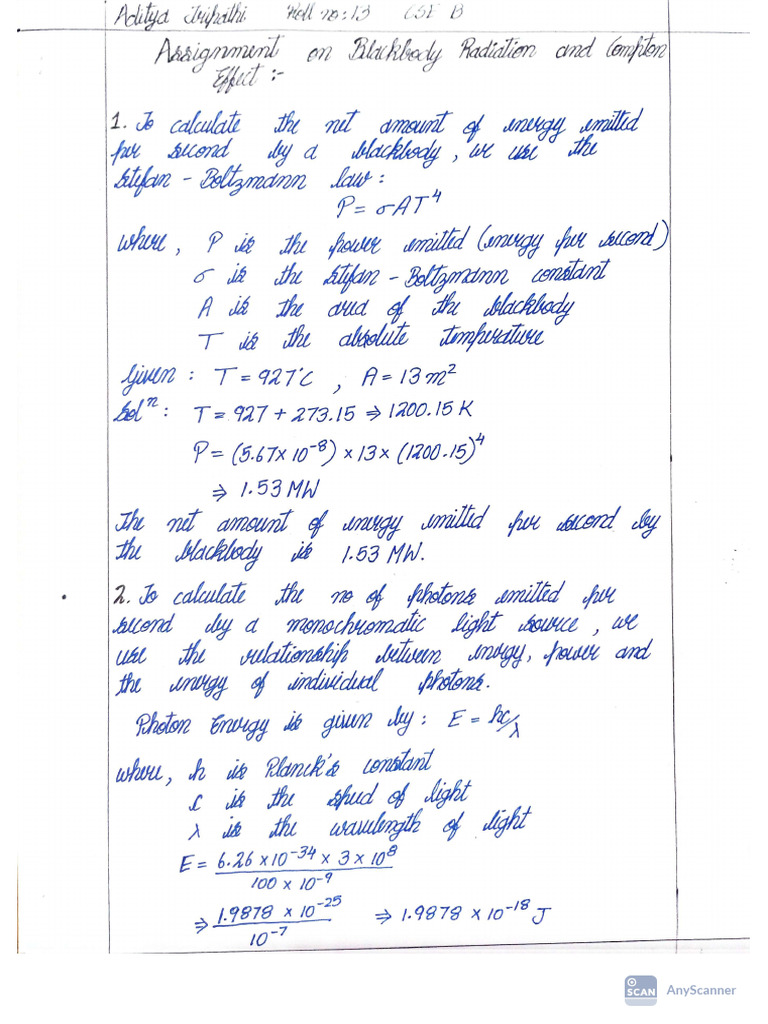 Aditya Tripathi. Roll no:13 CSE B
Assignment on Blackbody Radiation and Compton
Effect :-
1. To calculate the net amount of energy emitted
per second by a blackbody, we use the
Stefan - Boltzmann law :
P = σAT⁴
where, P is the power emitted (energy per second)
σ is the Stefan - Boltzmann constant
A is the area of the blackbody
T is the absolute temperature
Given : T = 927°C , A = 13 m²
Solⁿ : T = 927 + 273.15 ⇒ 1200.15 K
P = (5.67 × 10⁻⁸) × 13 × (1200.15)⁴
⇒ 1.53 MW
The net amount of energy emitted per second by
the blackbody is 1.53 MW.
2. To calculate the no of photons emitted per
second by a monochromatic light source, we
use the relationship between energy, power and
the energy of individual photons.
Photon Energy is given by : E = hc/λ
where, h is Planck's constant
c is the speed of light
λ is the wavelength of light
E = 6.26 × 10⁻³⁴ × 3 × 10⁸
100 × 10⁻⁹
⇒ 1.9878 × 10⁻²⁵ ⇒ 1.9878 × 10⁻¹⁸ J
10⁻⁷
SCAN AnyScanner